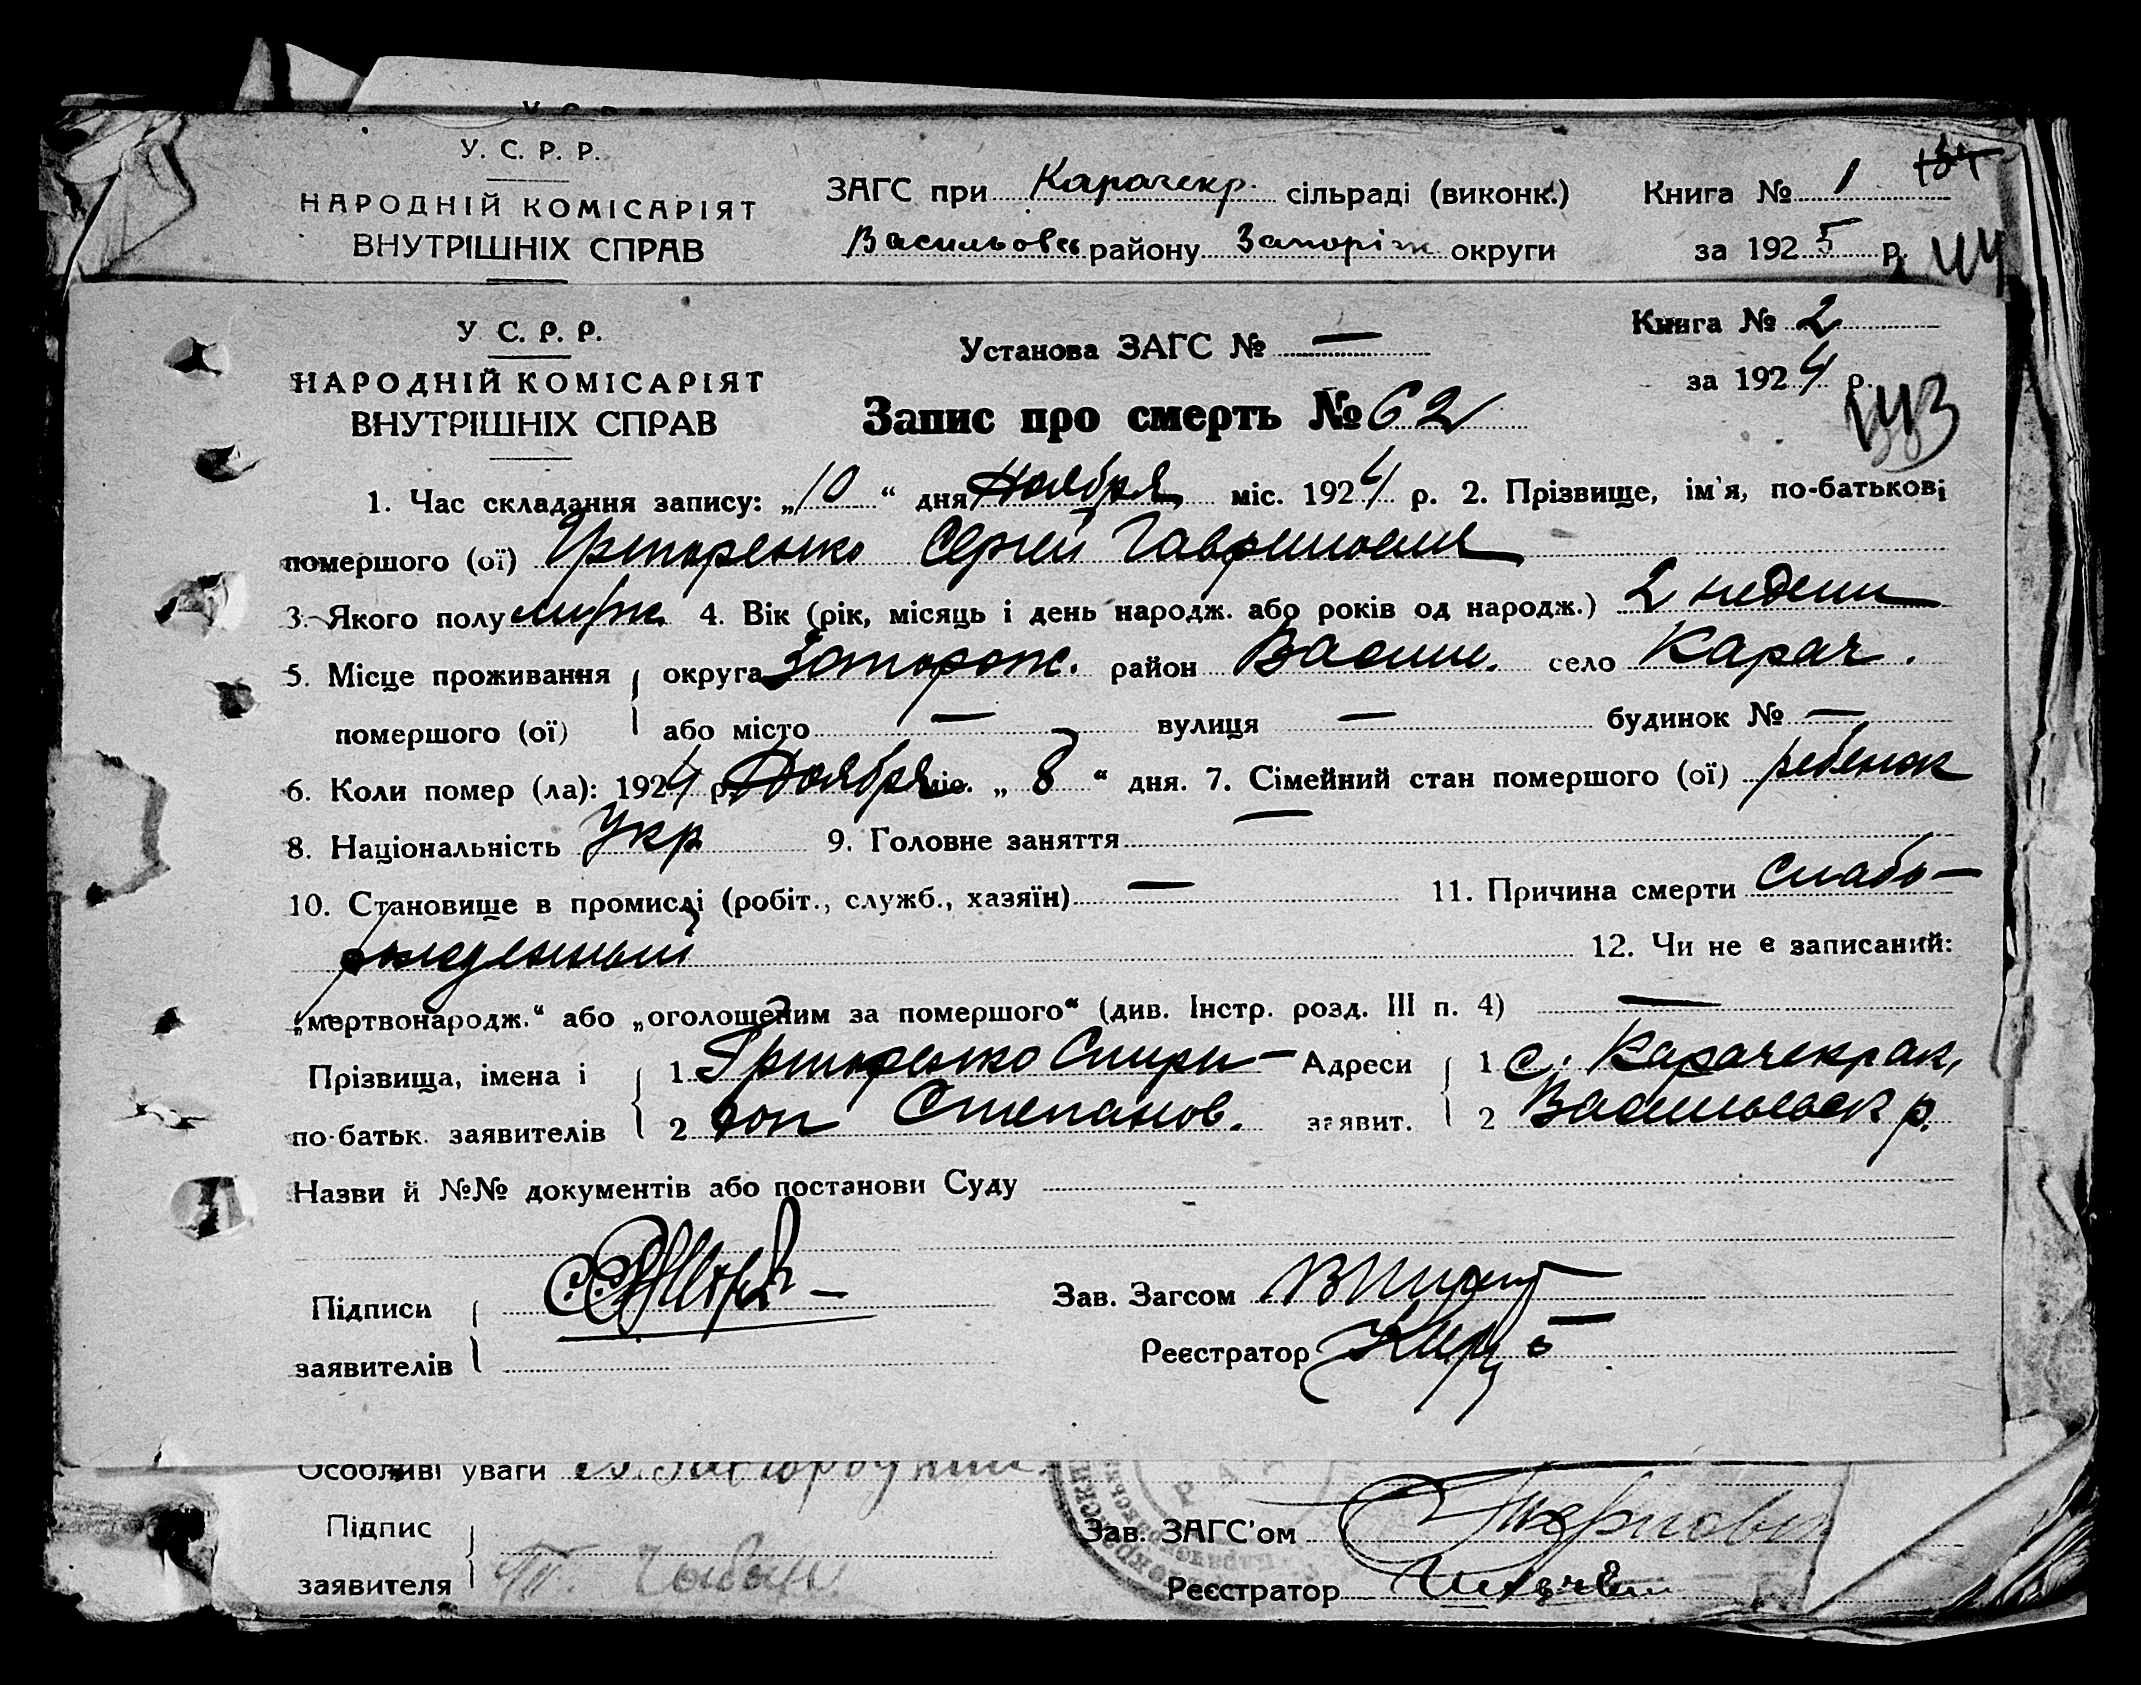 У. С. Р. Р.
НАРОДНІЙ КОМІСАРІЯТ
ВНУТРІШНІХ СПРАВ
ЗАГС при Карачекр. сільраді (виконк.)
Васильовс району Запоріж округи
Книга № 1 134
за 1925 р. 44
У С. Р. Р.
НАРОДНІЙ КОМІСАРІЯТ
ВНУТРІШНІХ СПРАВ
Установа ЗАГС № —
Книга № 2
за 1924 р.
Запис про смерть № 62
1. Час складання запису: „10“ дня Ноября міс. 1924 р. 2. Прізвище, ім'я, по-батькові
помершого (ої) Сергей
3. Якого полу муж. 4. Вік (рік, місяць і день народж. або років од народж.) 2 недели
5. Місце проживання округа Запорож. район Васил. село Карач.
помершого (ої) або місто — вулиця — будинок № —
6. Коли помер (ла): 1924 р. Ноября міс. „8“ дня. 7. Сімейний стан помершого (ої) ребенок
8. Національність Укр 9. Головне заняття —
10. Становище в промислі (робіт., служб., хазяїн) — 11. Причина смерти Слабо-
рожденный 12. Чи не є записаний:
„мертвонародж.“ або „оголошеним за помершого“ (див. Інстр. розд. III п. 4) —
Прізвища, імена і 1 Спири- Адреси 1 с. Карачекрак,
по-батьк. заявителів 2 дон Степанов. заявит. 2 Васильевск р.
Назви й №№ документів або постанови Суду
Підписи
заявителів
Зав. Загсом
Реєстратор
Особливі уваги
Підпис
заявителя
Зав. ЗАГС'ом
Реєстратор